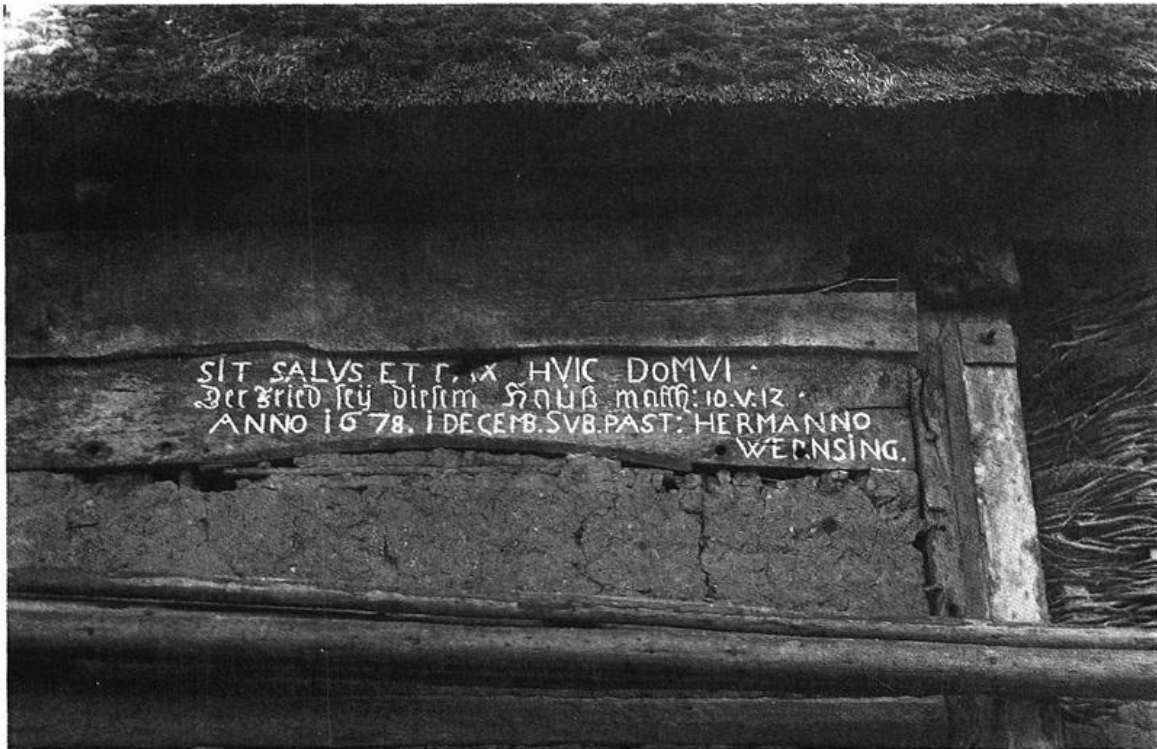 SIT SALVS ET PAX HVIC DOMVI ·
Der Fried seÿ diesem Hauß matth: 10. V: 12 ·
ANNO 1678. 1 DECEMB. SVB. PAST: HERMANNO
WERNSING.